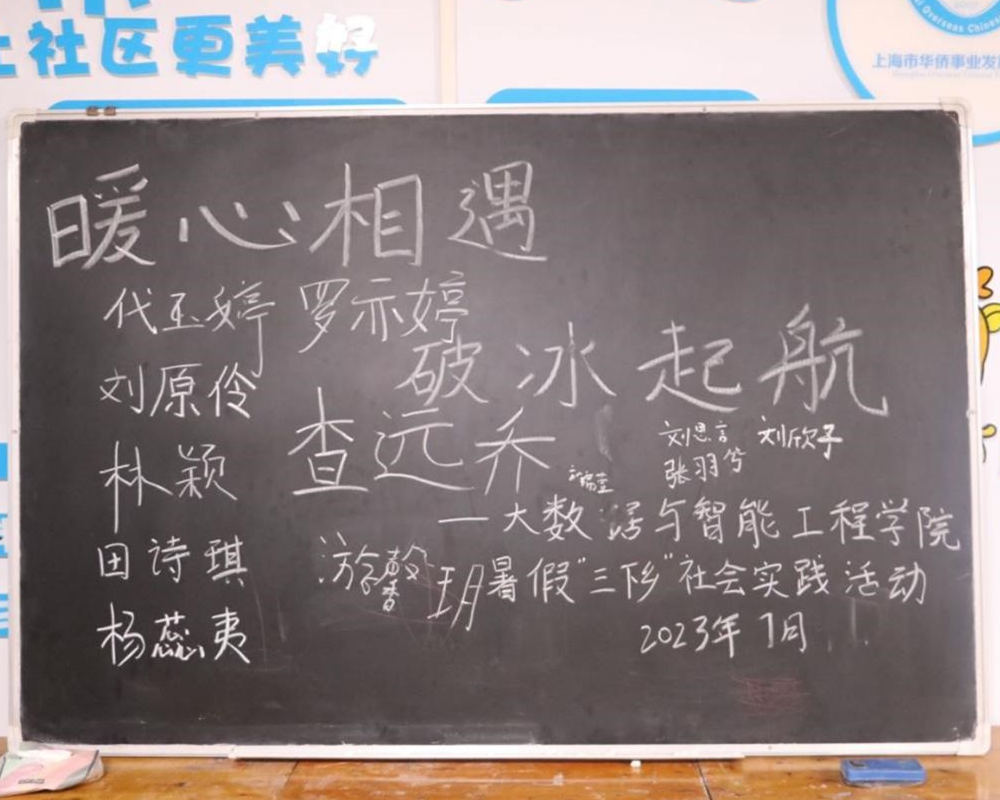 社区更美好
上海市华侨事业发
暖心相遇
代玉婷 罗示婷
破冰起航
刘原伶
查远乔
刘思言 刘欣子
张羽兮
林颖
一大数据与智能工程学院
田诗琪
游令馨
玥
暑假"三下乡"社会实践活动
杨蕊夷
2023年7月